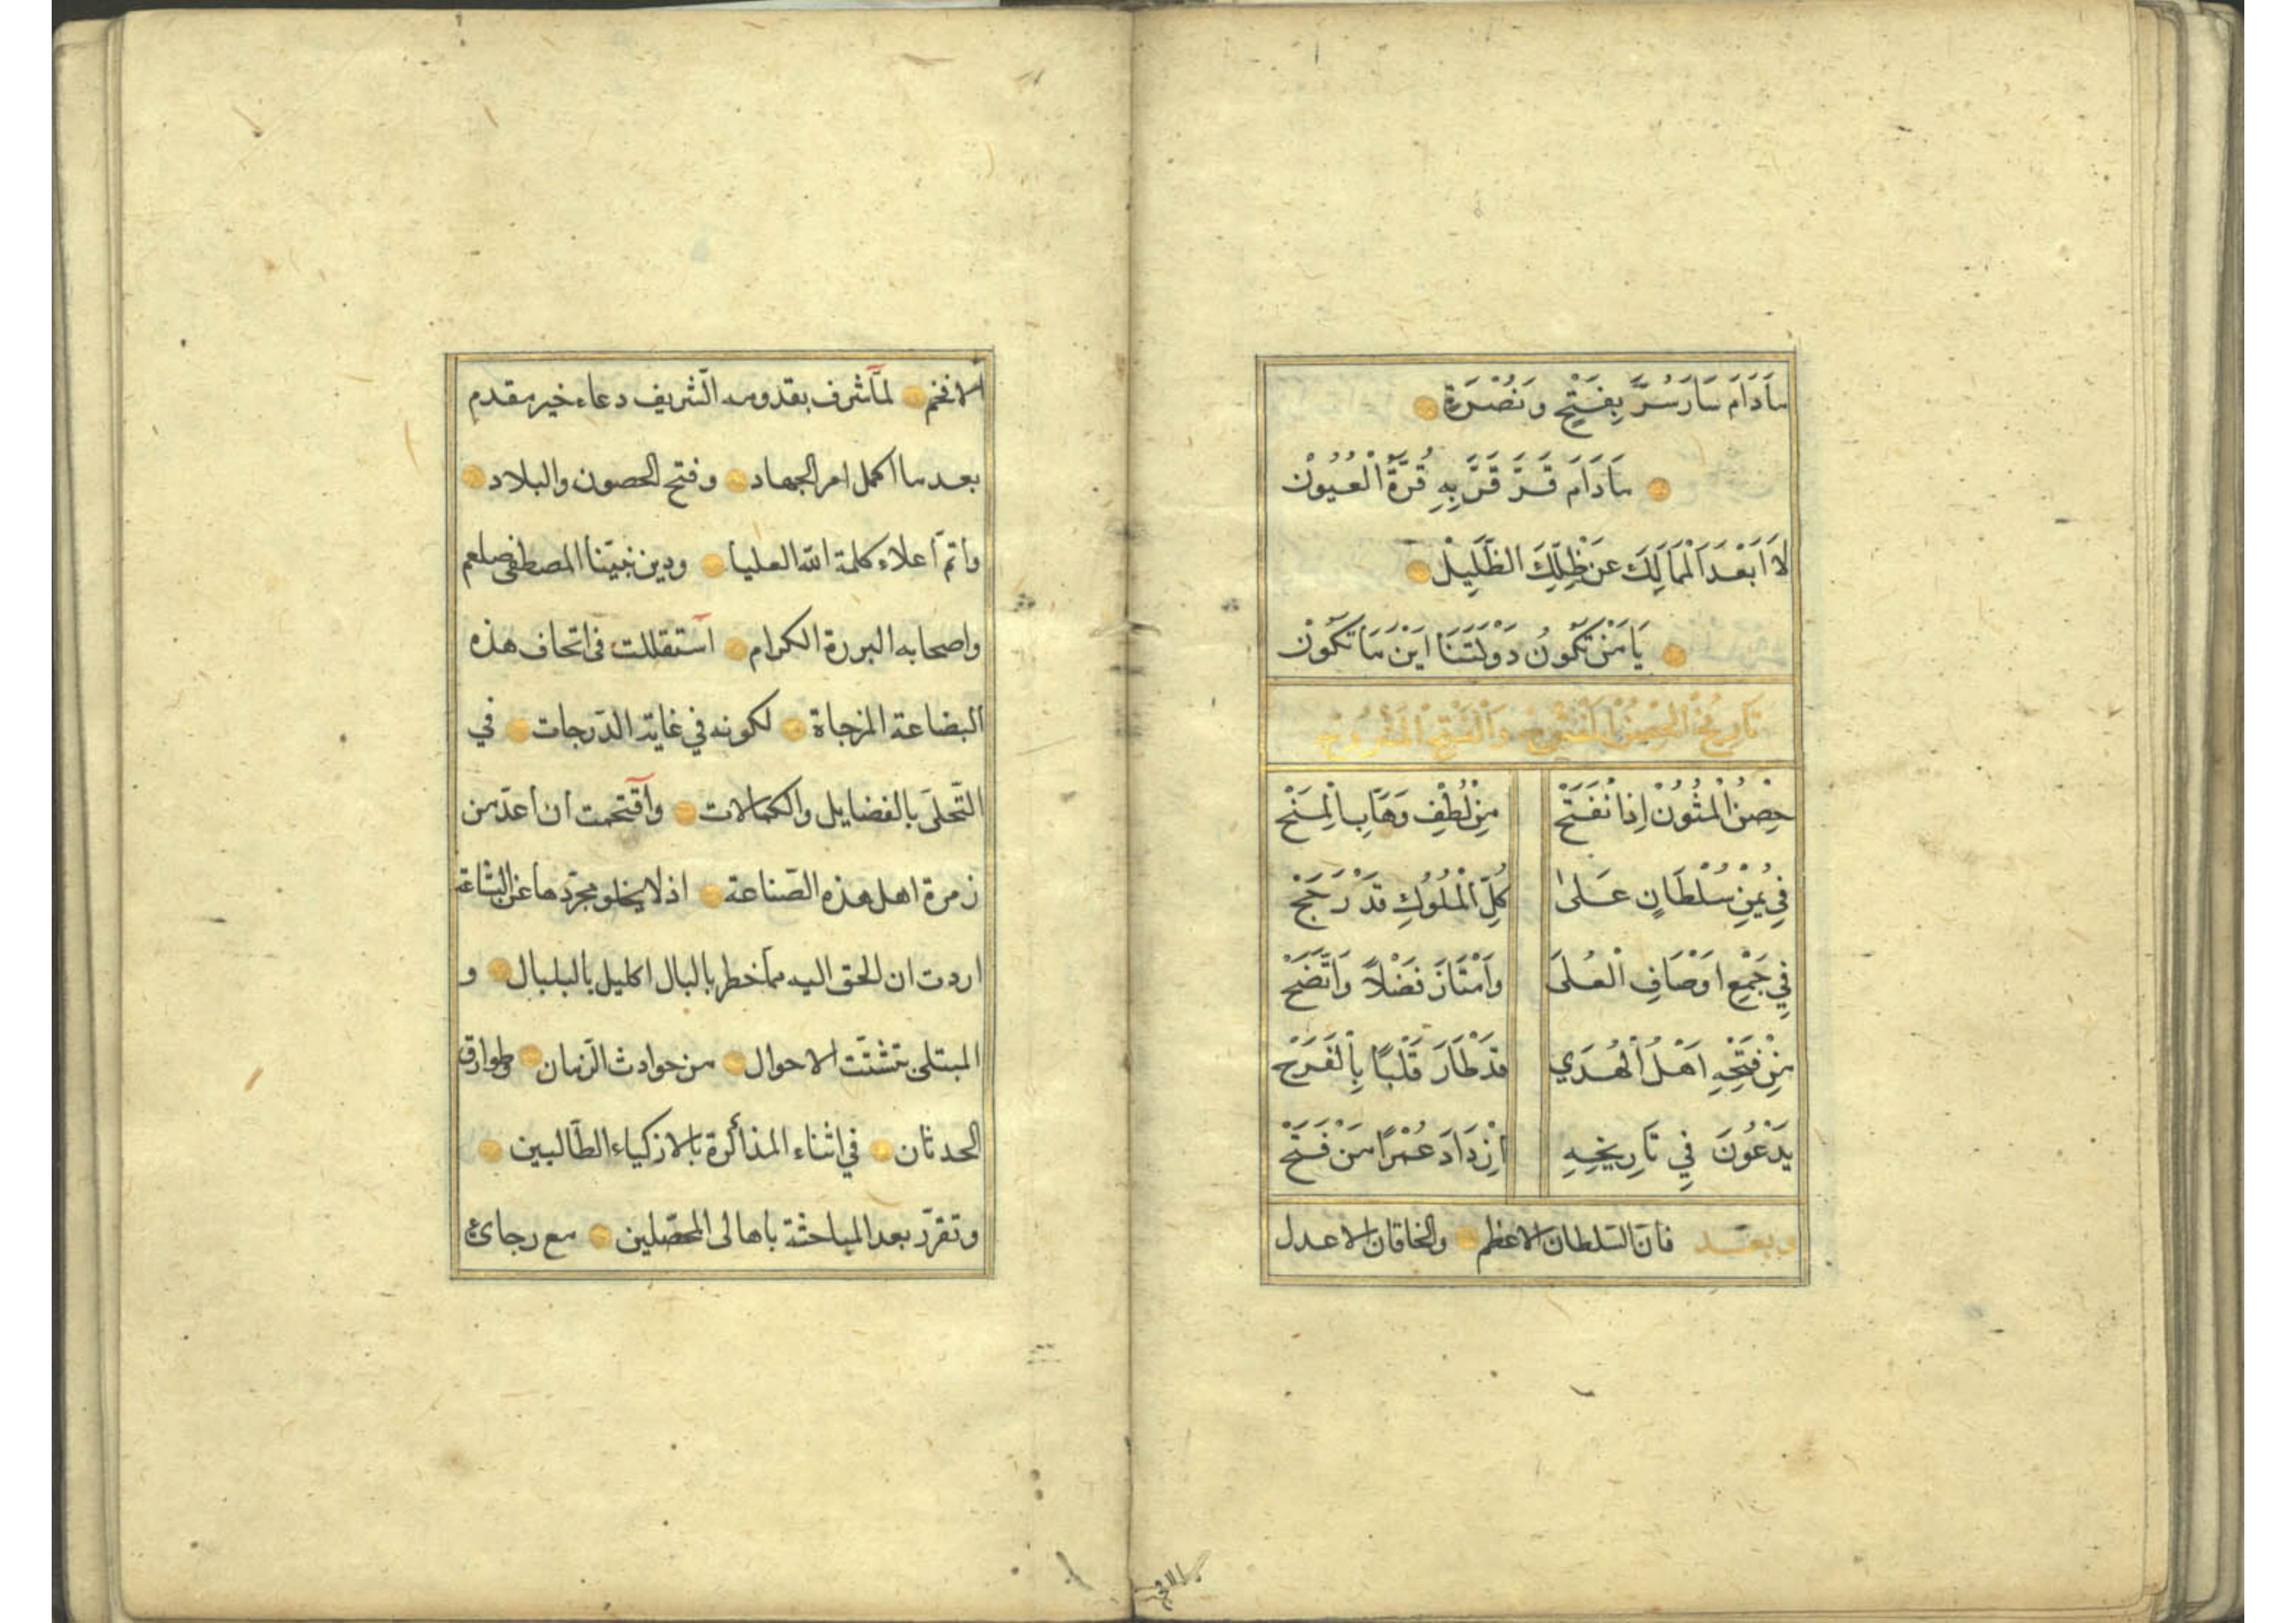 مَادَامَ سَارَ سُرَّ بِفَتْحٍ وَنُصْرَةٍ
مَادَامَ قَرَّ قَرَّ بِهِ قُرَّةُ الْعُيُوْنْ
لَا اَبْعَدَ الْمَمَالِكَ عَنْ ظِلِّكَ الظَّلِيْلْ
يَا مَنْ تَكُونُ دَوْلَتَنَا اَيْنَ مَا تَكُوْنْ
تَارِيْخُ الْحِصْنِ الْمَفْتُوحْ وَالْفَتْحِ الْمَشْرُوحْ
حِصْنُ الْمَتُوْنْ اِذَا نْفَتَحْ مِنْ لُطْفِ وَهَّابِ الْمِنَحْ
فِي يُمْنِ سُلْطَانٍ عَلَىٰ كُلِّ الْمُلُوْكِ قَدْ رَجَحْ
فِي جَمْعِ اَوْصَافِ الْعُلَىٰ وَامْتَازَ فَضْلًا وَاتَّضَحْ
مِنْ فَتْحِهِ اَهْلُ الْهُدَي قَدْ طَارَ قَلْبًا بِالْفَرَحْ
يَدْعُوْنَ فِي تَارِيخِهِ اِزْدَادَ عُمْرًا مَنْ فَتَحْ
وبعـد فان السّلطان الاعظم والخاقان الاعدل
الافخم
الافخم لمّا شرف بقدومه الشّريف دعاء خير مقدم
بعد ما اكمل امر الجهاد وفتح الحصون والبلاد
واتمّ اعلاء كلمة الله العليا ودين نبيّنا المصطفى صلعم
واصحابه البررة الكرام استقللت فى اتحاف هذه
البضاعة المزجاة لكونه في غاية الدّرجات في
التّحلّى بالفضايل والكمالات واقتحمت ان اعدّ من
زمرة اهل هذه الصّناعة اذ لا يخلو مجرّدها عن البشاعة
اردت ان الحق اليه ممّا خطر بالبال الكليل بالبلبال و
المبتلى بتشتّت الاحوال من حوادث الزّمان وطوارق
الحدثان في اثناء المذاكرة بالازكياء الطّالبين
وتقرّر بعد المباحثة باهالى المحصّلين مع رجائ